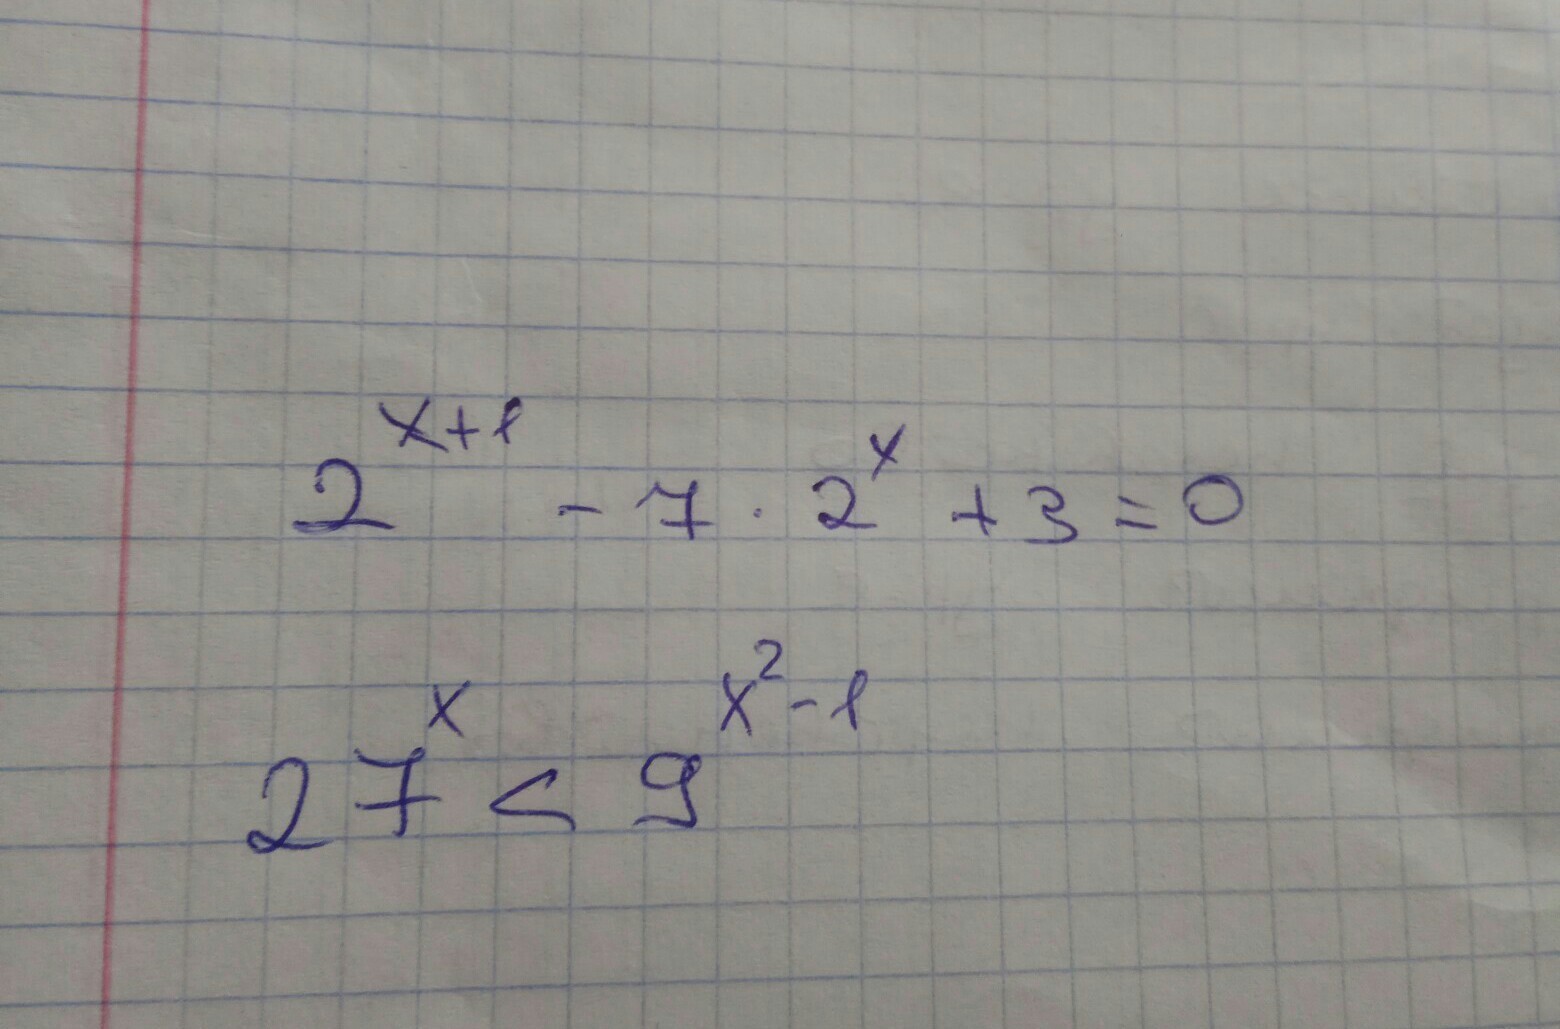 2^{x+1} - 7 · 2^x + 3 = 0
27^x < 9^{x^2-1}